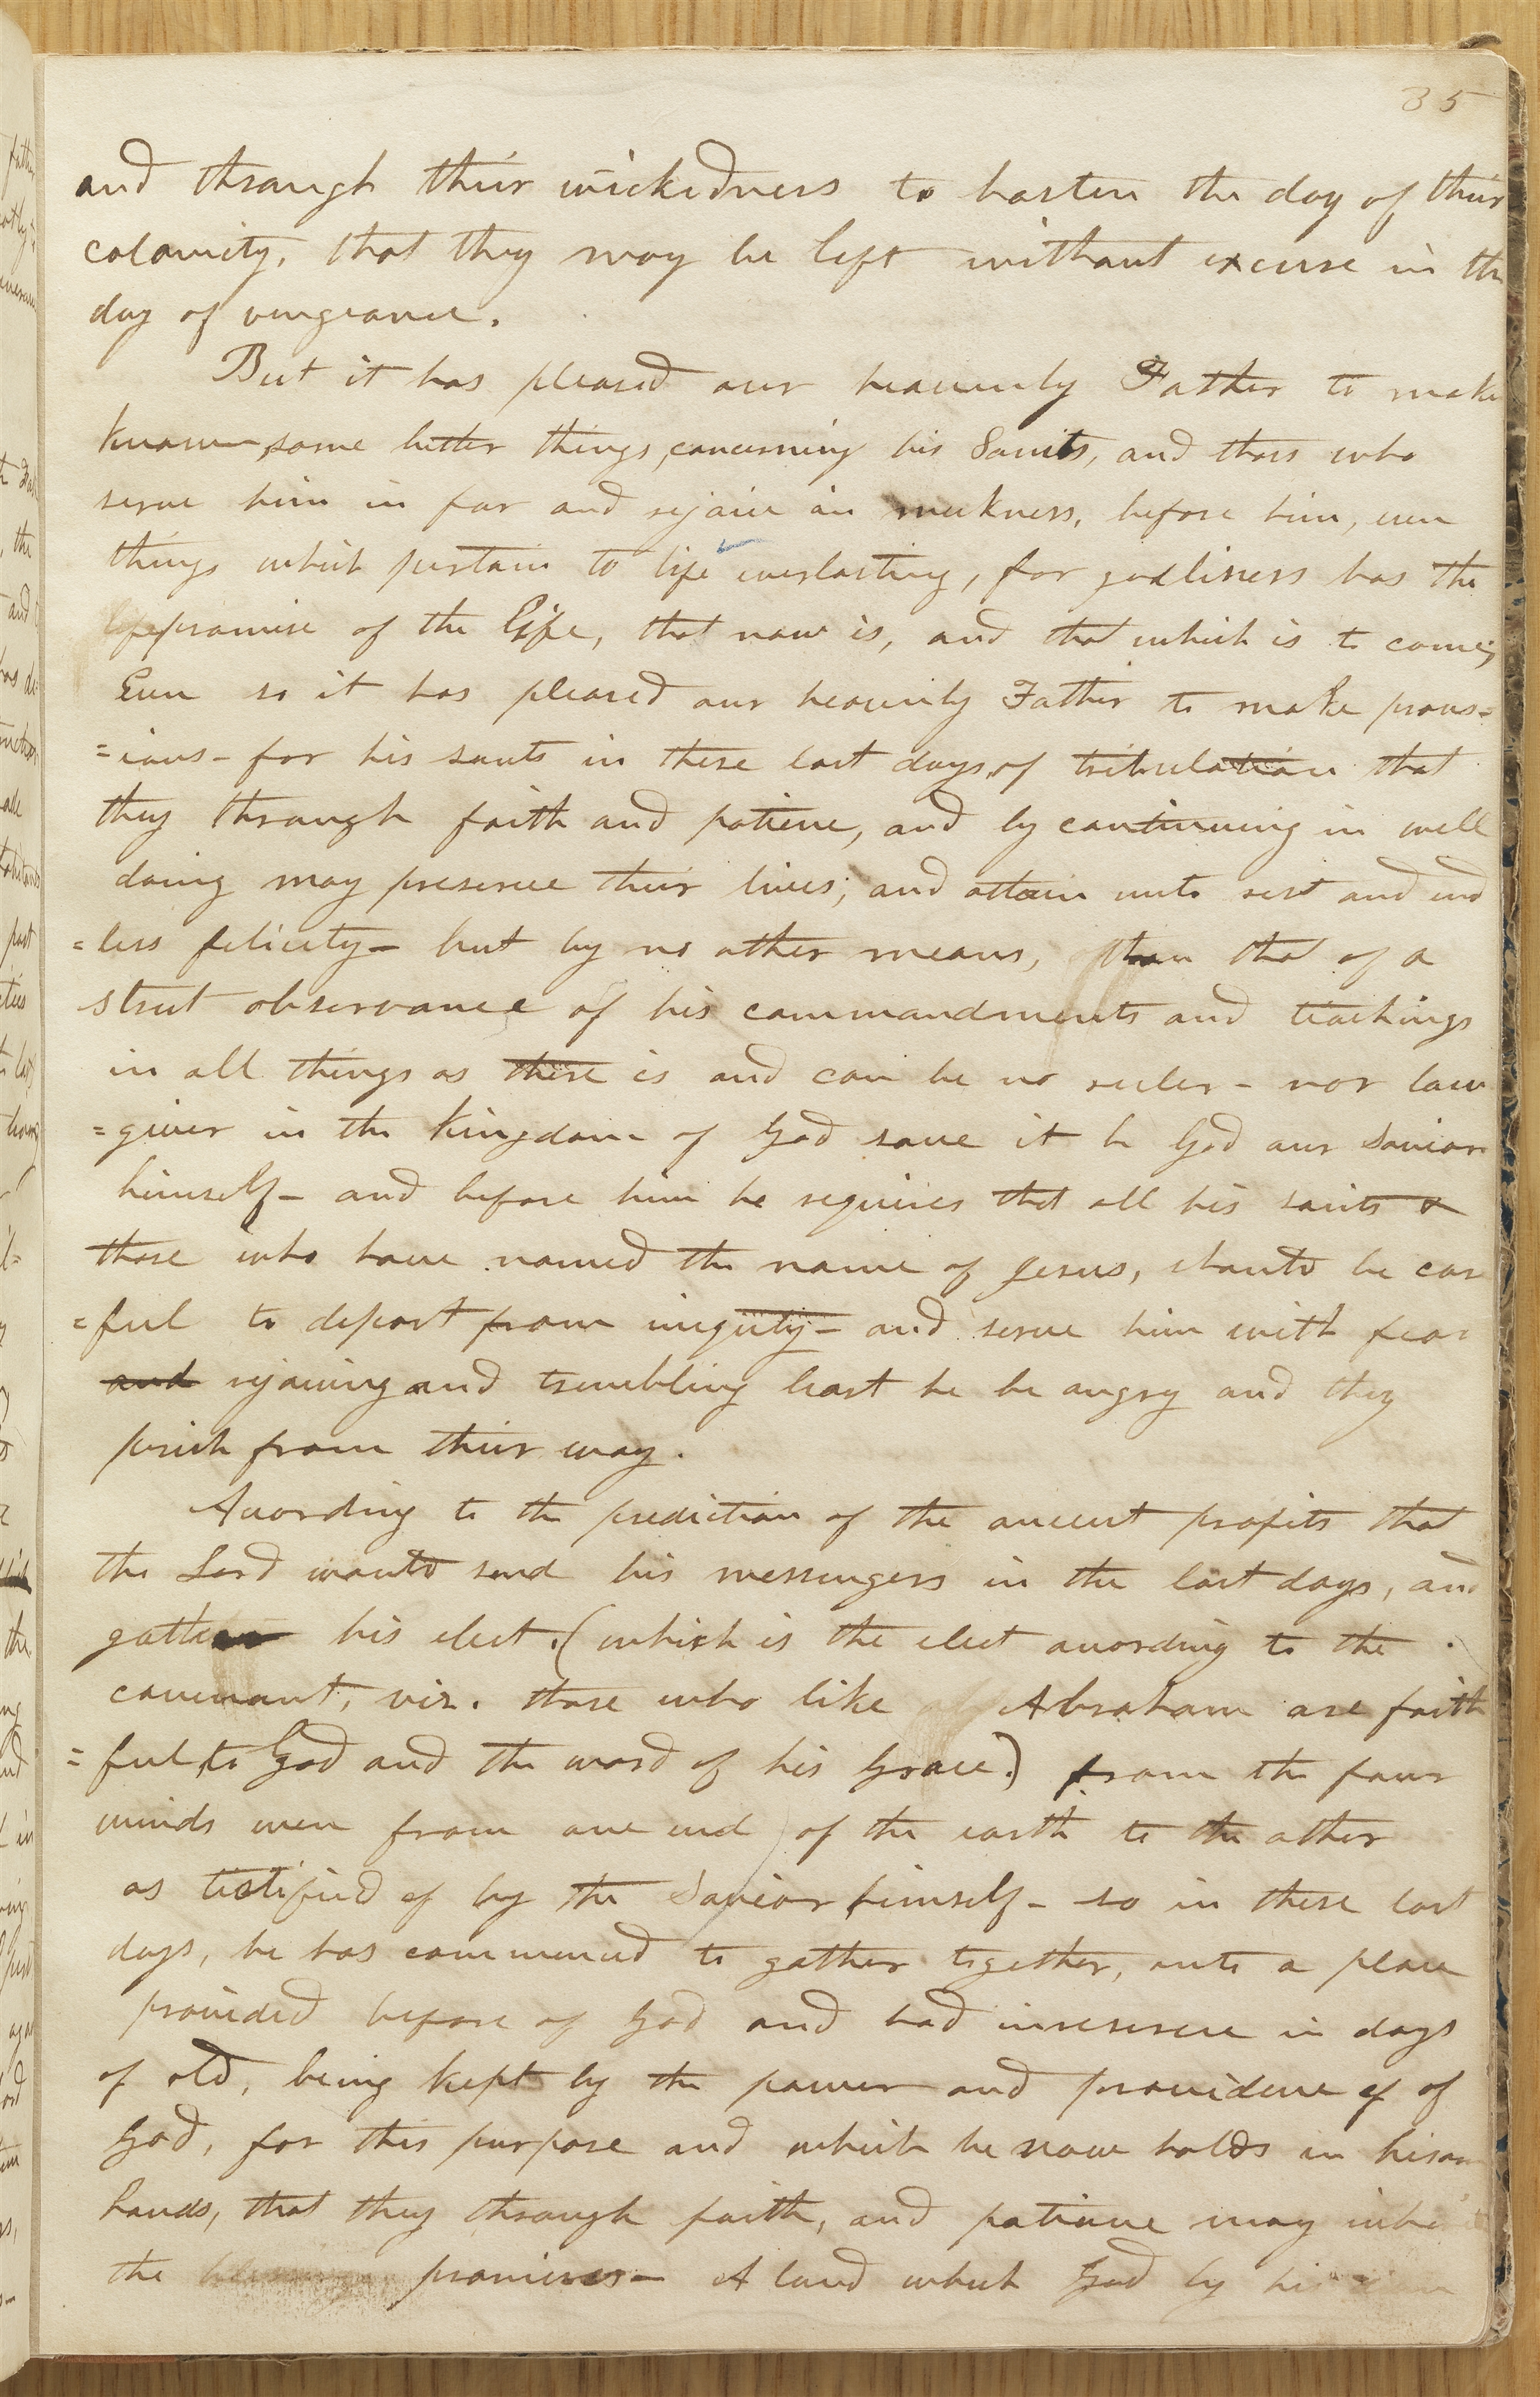 35
and through their wickedness to hasten the day of their
calamity, that they may be left without excuse in the
day of vengeance.
But it has pleased our heavenly Father to make
known, some better things, concerning his Saints, and thos who
serve him in fear and rejoice in meekness, before him, even
things which pertain to life everlasting, for godliness has the
promise of the life, that now is, and that which is to come;
Even so it has pleased our heavenly Father to make provis=
=ions- for his saints in these last days, of tribulation that
they through faith and patience, and by continuing in well
doing may preserve their lives; and attain unto rest and end
=less felicity- but by no other means, than that of a
strict observance of his commandments and teachings
in all things as there is and can be no ruler - nor law
=giver in the kingdom of God save it be God our Savior
himself- and before him he requires that all his saints &
those who have named the name of Jesus, should be care
=ful to depart from iniquity- and serve him with fear
and rejoicing and trembling least he be angry and they
perish from their way.
According to the prediction of the ancient profits that
the Lord would send his messengers in the last days, and
gather his elect, (which is the elect according to the
covenant, viz. those who like Abraham are faith
=ful, to God and the word of his Grace.) from the four
winds even from one end of the earth to the other
as testified of by the Savior himself- so in these last
days, he has commenced to gather together, into a place
provided before of God and had in reserve in days
of old, being kept by the power and providence of of
God, for this purpose and which he now holds in his own
hands, that they through faith, and patience may inherit
the promises- A land which God by his